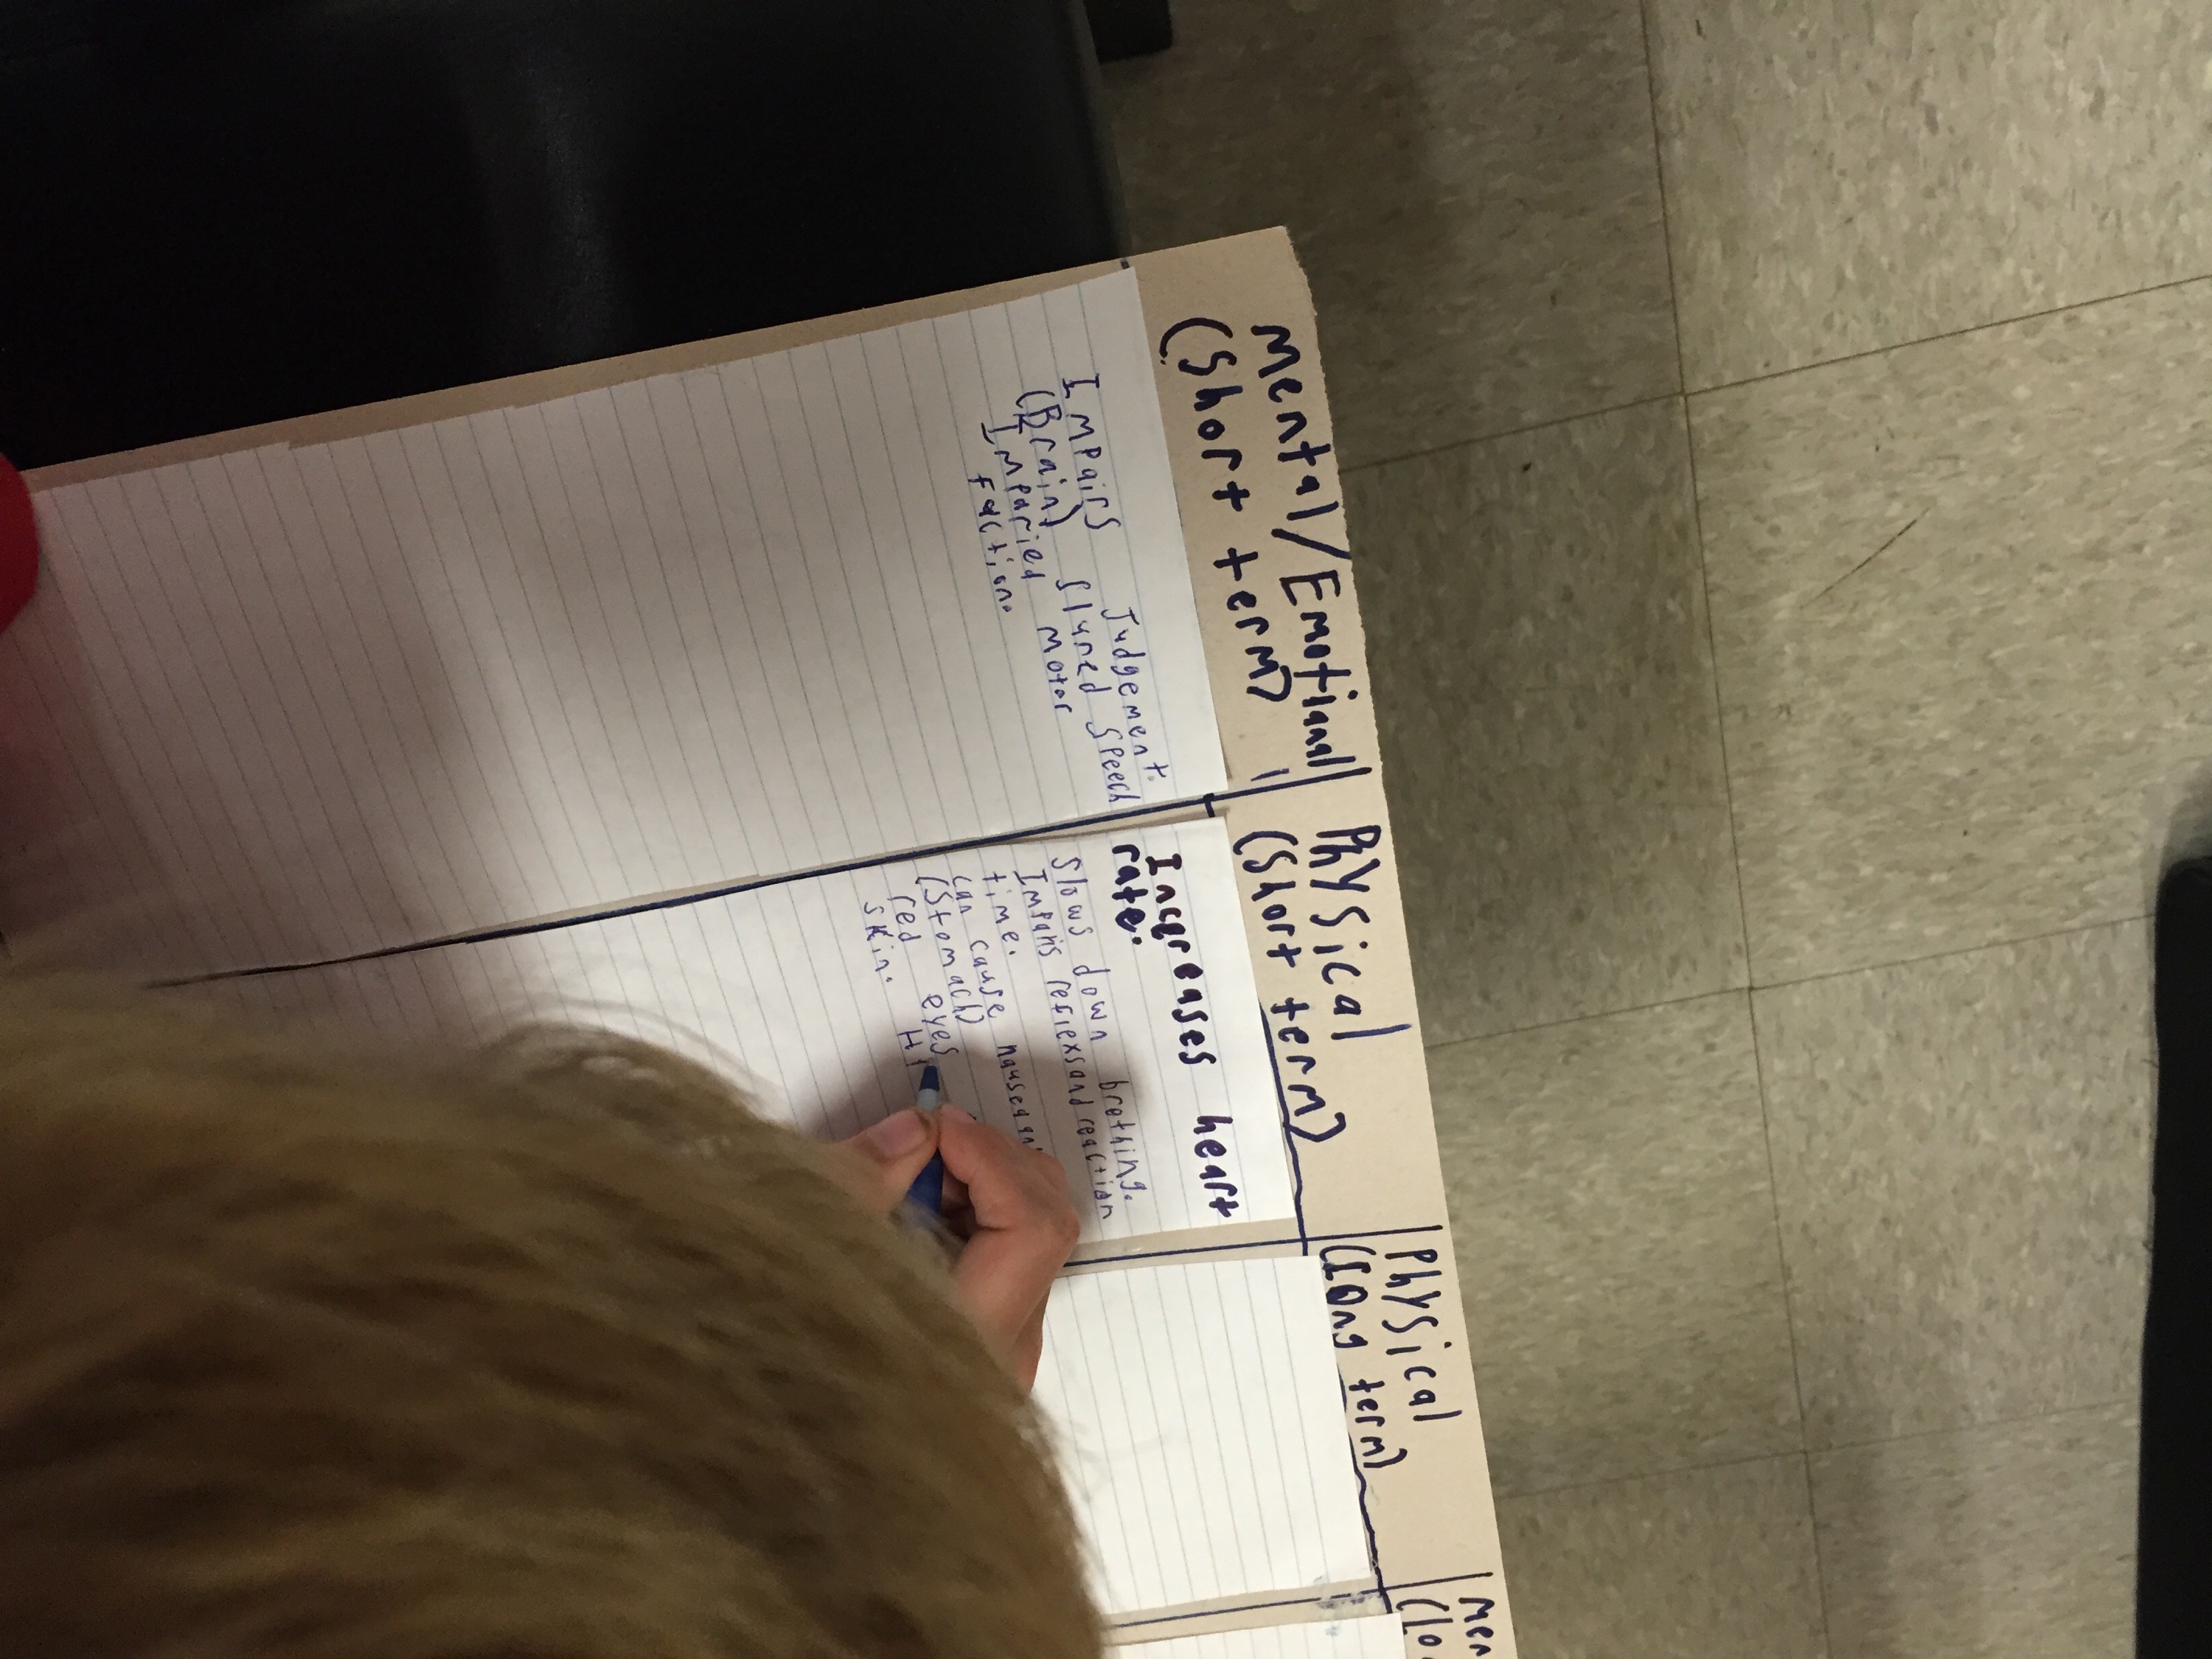 Mental/Emotional
(Short term)
Judgement.
Impairs slured speech
(Brain)
Imparied motor
Faction.
PhYSical
(Short term)
Incqreases heart
rate.
Slows down brething.
Impairs reflexs and reaction
time.
can cause nausea
(Stomach)
red eyes
skin. Hi
PhYSical
(long term)
Men
(lo